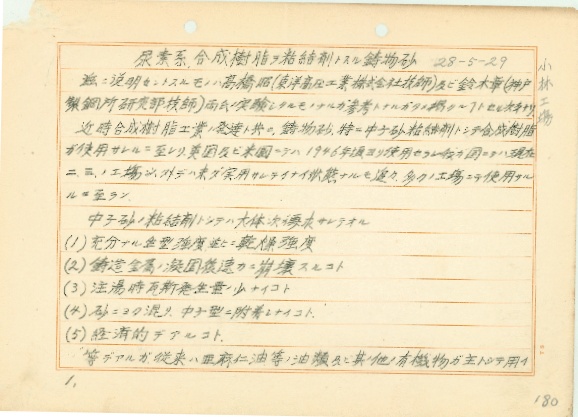 尿素系合成樹脂ヲ粘結剤トスル鋳物砂 28-5-29
小林工場
茲ニ説明セントスルモノハ高橋 (東洋高圧工業株式会社技師)及ビ鈴木章(神戸
製鋼所研究部技師)両氏ノ実験
近時合成樹脂工業ノ発達ト共ニ鋳物砂、特ニ中子砂粘結剤トシテ合成樹脂
ガ使用サレルニ至レリ、英国及ビ米国ニテハ1946年頃ヨリ使用セラレ我ガ国ニテハ現在
二、三ノ工場 外デハ未ダ実用サレテイナイ状態ナルモ遠カラズ多クノ工場ニテ使用サル
ルニ至ラン.
中子砂ノ粘結剤トシテハ大体次ノ事ガ要求サレテオル
(1) 充分ナル生型強度並ニ乾燥強度
(2) 鋳造金属ノ凝固後速カニ崩壊スルコト
(3) 注湯時瓦斯発生量ノ少ナイコト
(4) 砂ニヨク混リ、中子型ニ附着シナイコト.
(5) 経済的デアルコト.
等デアルガ従来ハ亜麻仁油等ノ油類及ビ其ノ他ノ有機物ガ主トシテ用イ
1.
180